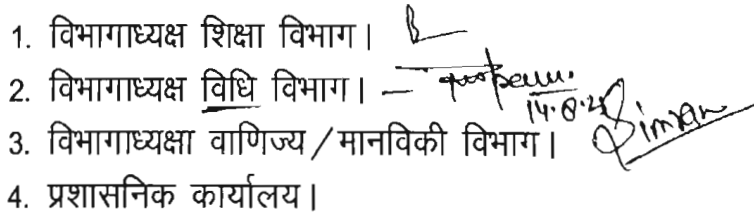 1. विभागाध्यक्ष शिक्षा विभाग।
2. विभागाध्यक्ष विधि विभाग। –
14.8.2
3. विभागाध्यक्षा वाणिज्य / मानविकी विभाग। Simran
4. प्रशासनिक कार्यालय।